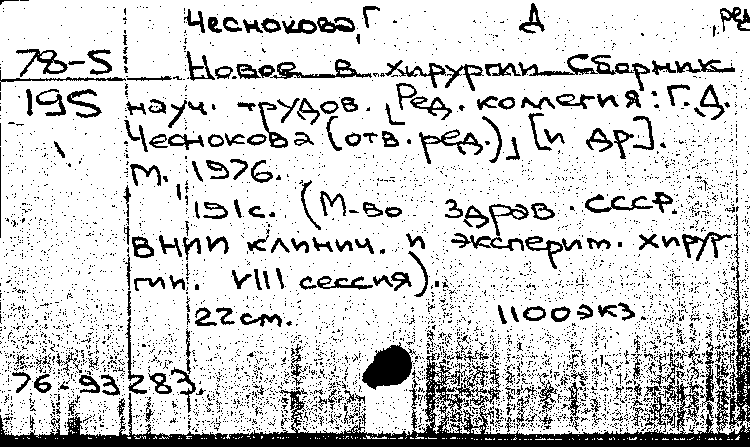 Чеснокова, Г. Д , ред
78-5 Новое в хирургии Сборник
195 науч. трудов. [Ред. коллегия: Г.Д.
Чеснокова (отв. ред.)], [и др].
М., 1976.
191с. (М-во здрав. СССР.
ВНИИ клинич. и эксперит. хирур
гии. VIII сессия).
22 см. 1100 экз.
76-93283.